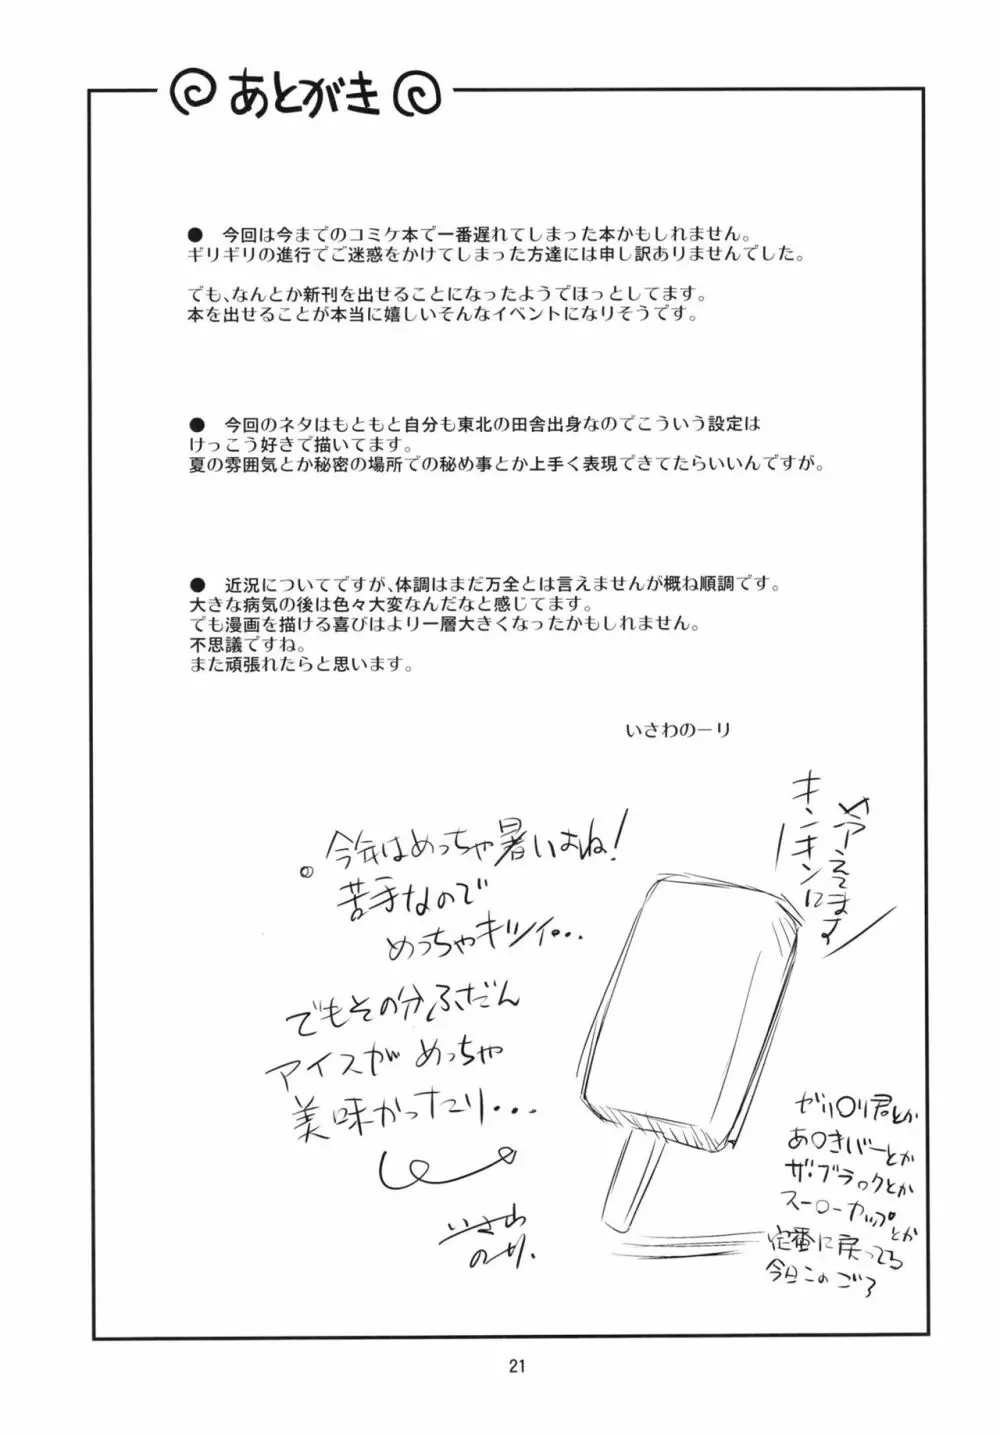 あとがき
● 今回は今までのコミケ本で一番遅れてしまった本かもしれません。
ギリギリの進行でご迷惑をかけてしまった方達には申し訳ありませんでした。
でも、なんとか新刊を出せることになったようでほっとしてます。
本を出せることが本当に嬉しいそんなイベントになりそうです。
● 今回のネタはもともと自分も東北の田舎出身なのでこういう設定は
けっこう好きで描いてます。
夏の雰囲気とか秘密の場所での秘め事とか上手く表現できてたらいいんですが。
● 近況についてですが、体調はまだ万全とは言えませんが概ね順調です。
大きな病気の後は色々大変なんだなと感じてます。
でも漫画を描ける喜びはより一層大きくなったかもしれません。
不思議ですね。
また頑張れたらと思います。
いさわのーり
。今年はめっちゃ暑いよね!
苦手なので
めっちゃキツイ・・・
でもその分ふだん
アイスが めっちゃ
美味かったり・・・
いさわ
のーり.
キンキンに
ひえてます
ゼリ○リ君とか
あ○きバーとか
ザ・ブラックとか
スー○ーカップとか
定番に戻ってる
今日このごろ
21